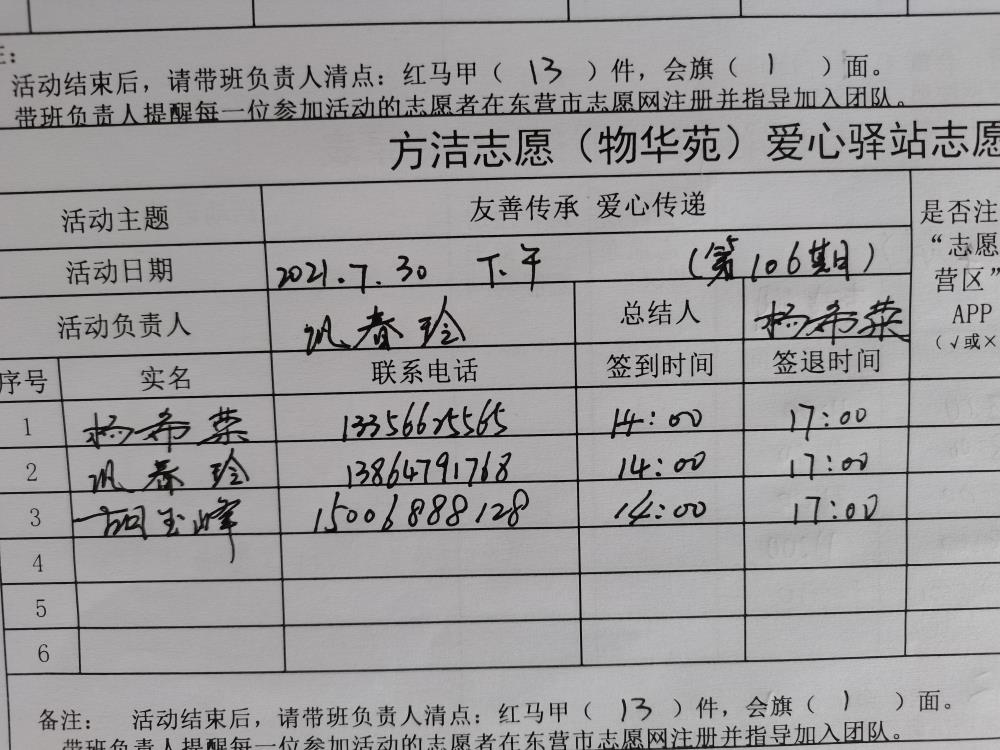 注：
活动结束后，请带班负责人清点：红马甲（ 13 ）件，会旗（ 1 ）面。
带班负责人提醒每一位参加活动的志愿者在东营市志愿网注册并指导加入团队。
方洁志愿（物华苑）爱心驿站志愿
活动主题 友善传承 爱心传递 是否注
“志愿
营区”
APP
（√或×
活动日期 2021.7.30 下午 （第106期）
活动负责人 春玲 总结人 杨希荣
序号 实名 联系电话 签到时间 签退时间
1 杨希荣 13356625565 14:00 17:00
2 春玲 13864791768 14:00 17:00
3 胡玉峰 15006888128 14:00 17:00
4
5
6
备注： 活动结束后，请带班负责人清点：红马甲（ 13 ）件，会旗（ 1 ）面。
带班负责人提醒每一位参加活动的志愿者在东营市志愿网注册并指导加入团队。